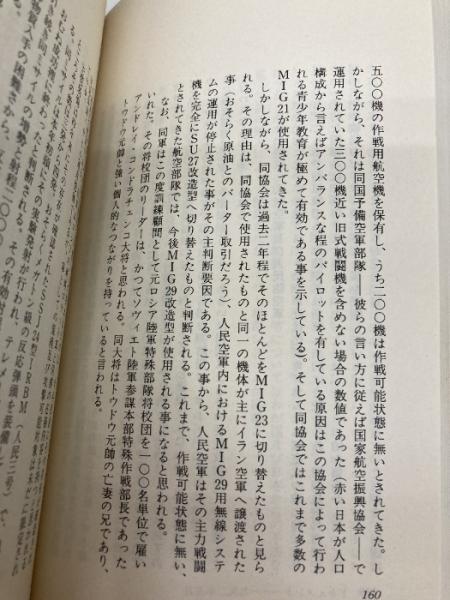 五〇〇機の作戦用航空機を保有し、うち二〇〇機は作戦可能状態に無いとされてきた。し
かしながら、それは同国予備空軍部隊――彼らの言い方に従えば国家航空振興協会――で
運用されていた三〇〇機近い旧式戦闘機を含めない場合の数値であった（赤い日本が人口
構成から言えばアンバランスな程のパイロットを有している原因はこの協会によって行わ
れる青少年教育が極めて有効である事を示している）。そして同協会ではこれまで多数の
MIG21が使用されてきた。
しかしながら、同協会は過去二年程でそのほとんどをMIG23に切り替えたものと見ら
れる。その理由は、同協会で使用されたものと同一の機体が主にイラン空軍へ譲渡された
事（おそらく原油とのバーター取引だろう）、人民空軍内におけるMIG29用無線システ
ムの運用が停止された事がその主判断要因である。この事から、人民空軍はその主力戦闘
機を完全にSU27改造型へ切り替えたものと判断される。これまで、作戦可能状態に無い、
とされてきた航空部隊では、今後MIG29改造型が使用される事になると思われる。
なお、同軍はこの度訓練顧問として元ロシア陸軍特殊部隊将校団を一〇〇名単位で雇い
いれた。その将校団のリーダーは、かつてソヴィエト陸軍参謀本部特殊作戦部長であった
アンドレイ・コンドラチェンコ大将と思われる。同大将はトウドウ元帥の亡妻の兄であり、
トウドウ元帥と強い個人的なつながりを持っていると言われる。
160